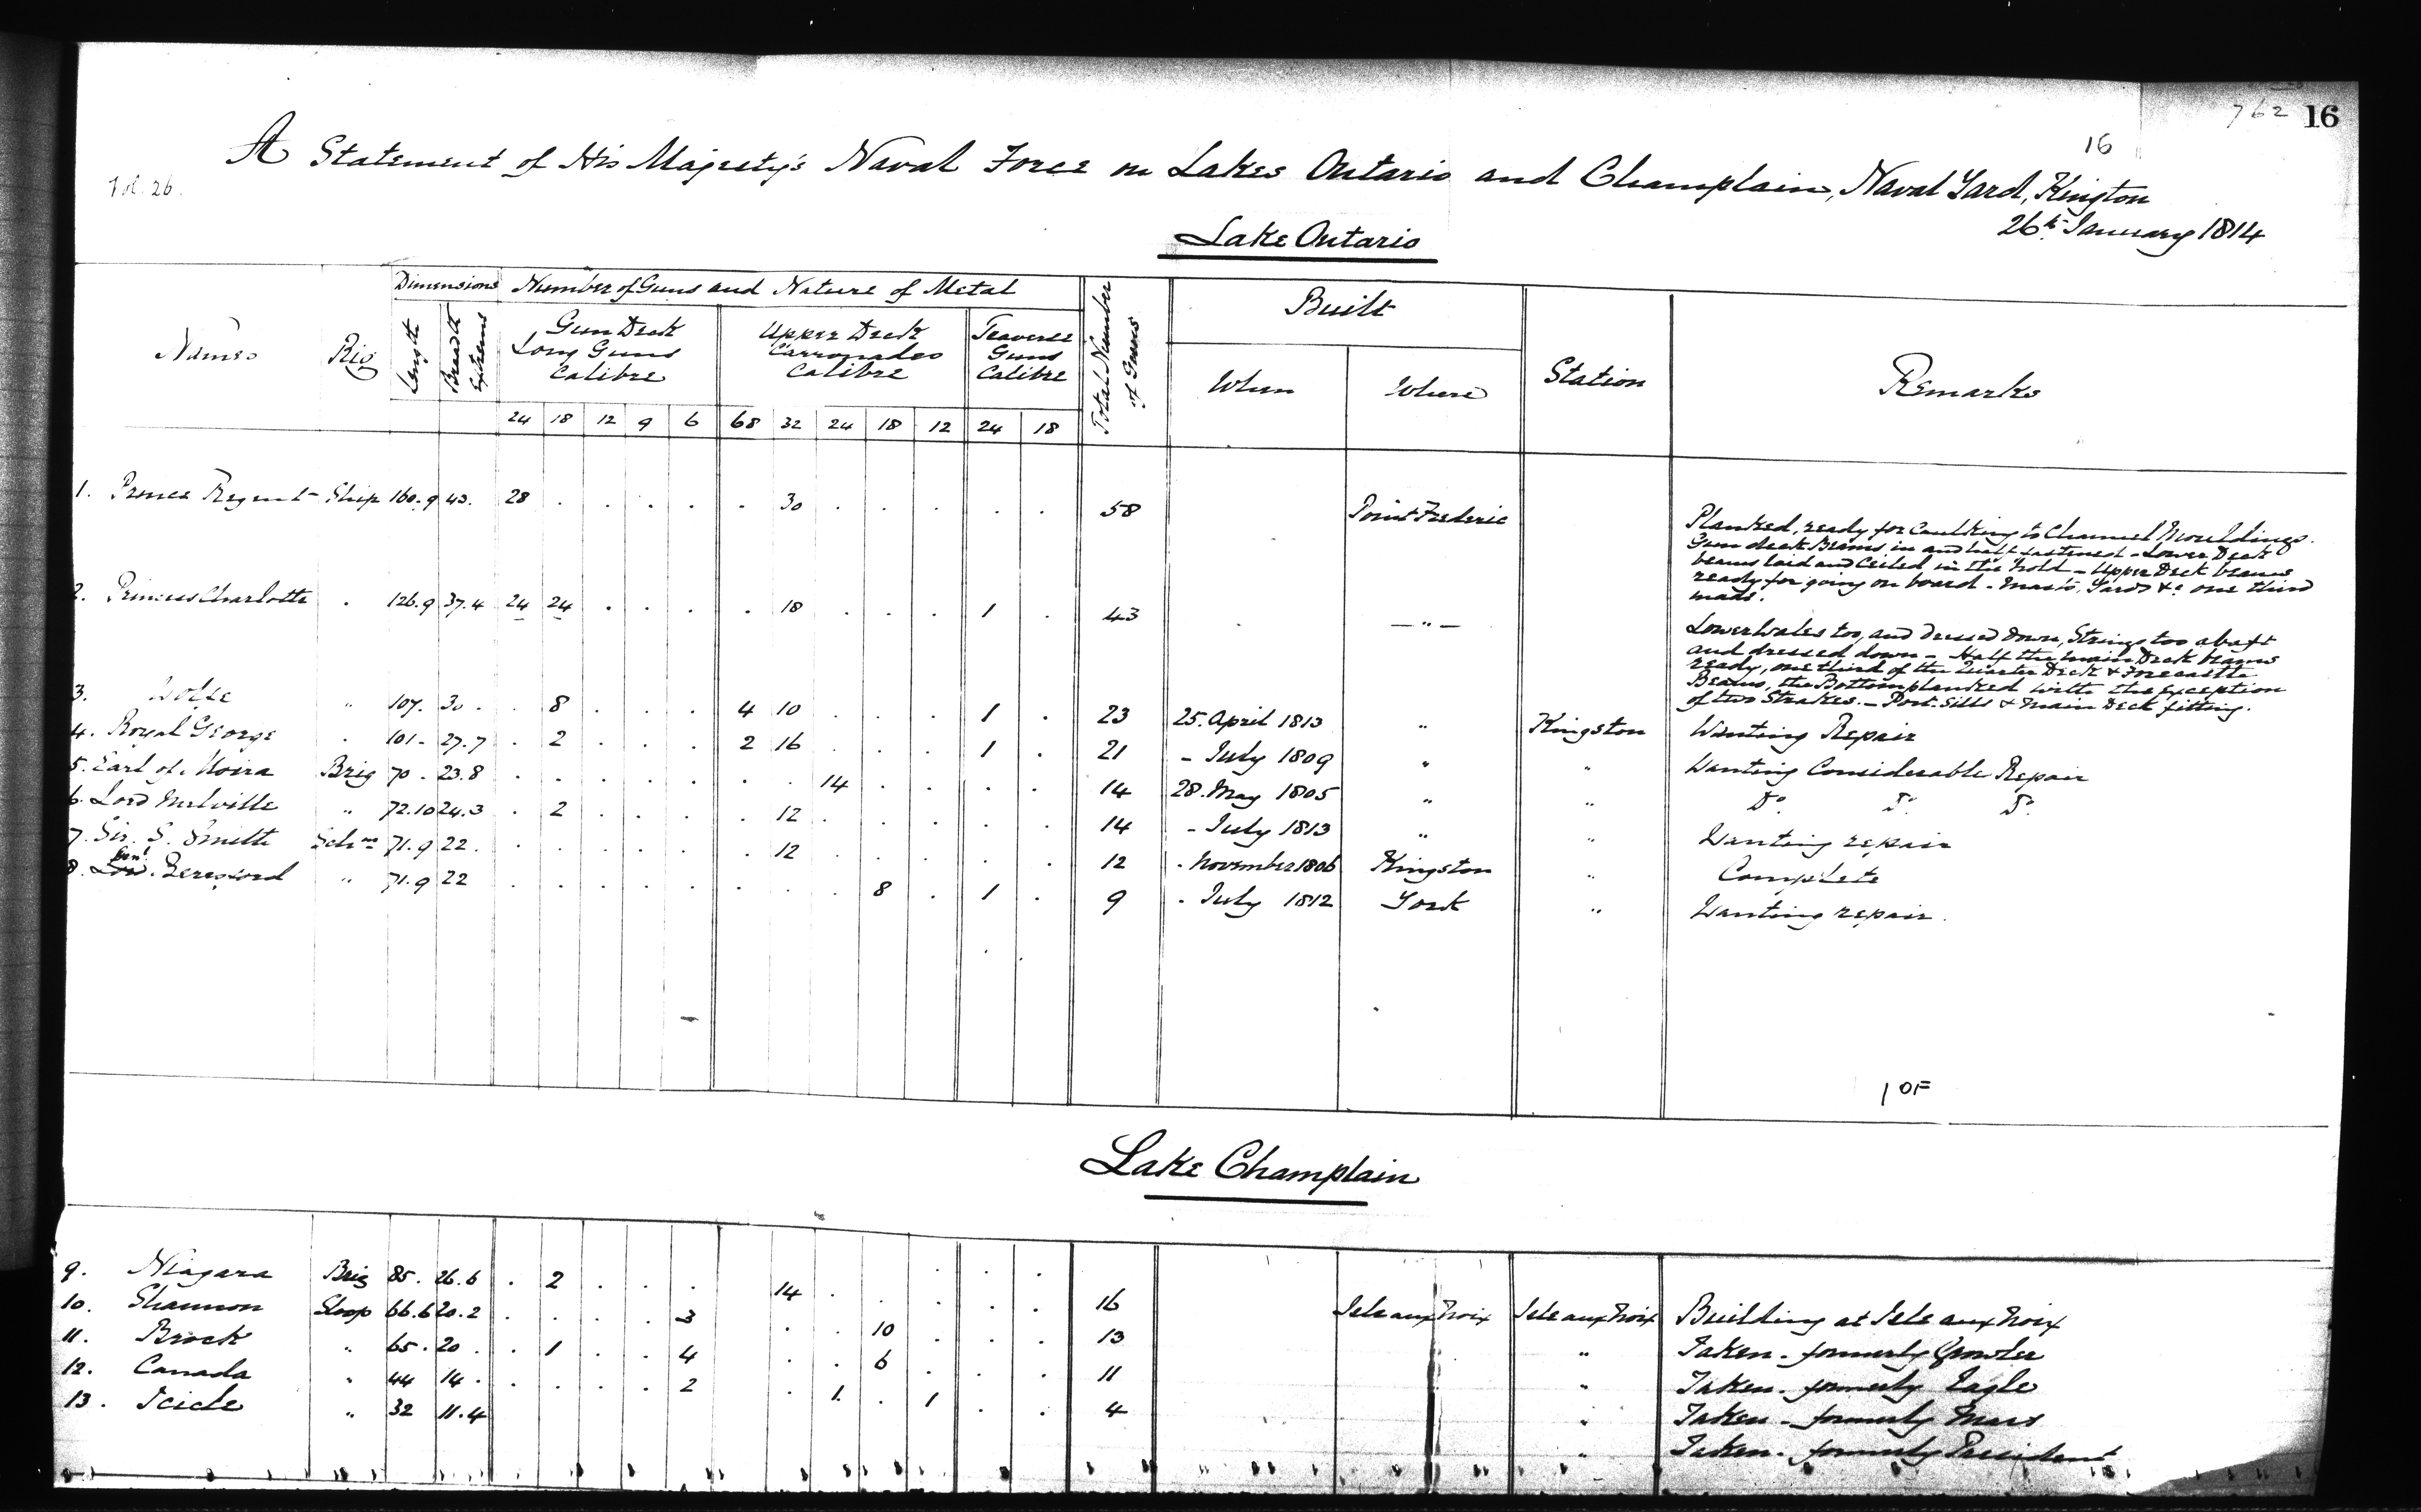 762 16
16
A Statement of His Majesty's Naval Force on Lakes Ontario and Champlain, Naval Yard, Kington
Vol. 26.
26th January 1814
Lake Ontario
Names Rig Dimensions Number of Guns and Nature of Metal Total Number of Guns Built Station Remarks
Length Breadth Extreme Gun Deck Long Guns Calibre Upper Deck Carronades Calibre Traverse Guns Calibre When Where
24 18 12 9 6 68 32 24 18 12 24 18
1. Prince Regent Ship 160.9 43. 28 . . . . . 30 . . . . . 58 Point Frederic
Planked, ready for Caulking to Channel Mouldings.
Gun deck Beams in and half fastened - Lower Deck
beams laid and Ceiled in the hold - Upper Deck beams
ready for going on board - Masts, Yards &c one third
made.
2. Princess Charlotte . 126.9 37.4 24 24 . . . . 18 . . . 1 . 43 — " —
Lower Wales too, and dressed down, Strings too abaft
and dressed down - Half the main Deck beams
ready, one third of the Quarter Deck & Forecastle
Beams, the Bottom planked with the exception
of two Strakes. - Port Sills & Main Deck fitting.
3. Wolfe " 107. 30. . 8 . . . 4 10 . . . 1 . 23 25. April 1813 " Kingston Wanting Repair
4. Royal George . 101 - 27.7 . 2 . . . 2 16 . . . 1 . 21 - July 1809 " " Wanting Considerable Repair
5. Earl of Moira Brig 70 . 23.8 . . . . . . . 14 . . . . 14 28. May 1805 " " Do. Do. Do.
6. Lord Melville " 72.10 24.3 . 2 . . . . 12 . . . . . 14 - July 1813 " " Wanting repair
7. Sir S. Smith Schnr 71.9 22. . . . . . . 12 . . . . . 12 . November 1806 Kingston " Complete
8. Genl. Beresford " 71.9 22 . . . . . . . . 8 . 1 . 9 . July 1812 York " Wanting repair.
1 OF
Lake Champlain
9. Niagara Brig 85. 26.6 . 2 . . . 14 . . . . . 16 Isle aux Noix Isle aux Noix Building at Isle aux Noix
10. Shannon Sloop 66.6 20.2 . . . . 3 . . 10 . . . 13 " Taken - formerly Growler
11. Brock " 65. 20 . . 1 . . 4 . . 6 . . . 11 " Taken - formerly Eagle
12. Canada " 44 14 . . . . . 2 . 1. . 1 . . 4 " Taken - formerly Mars
13. Icicle " 32 11.4 " Taken - formerly President